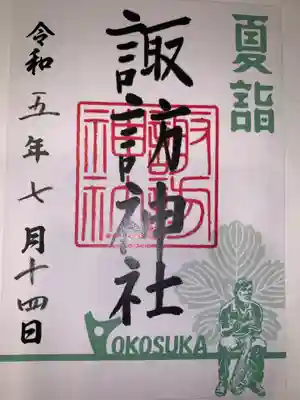 夏詣
諏訪神社
諏訪神社
令和五年七月十四日
YOKOSUKA